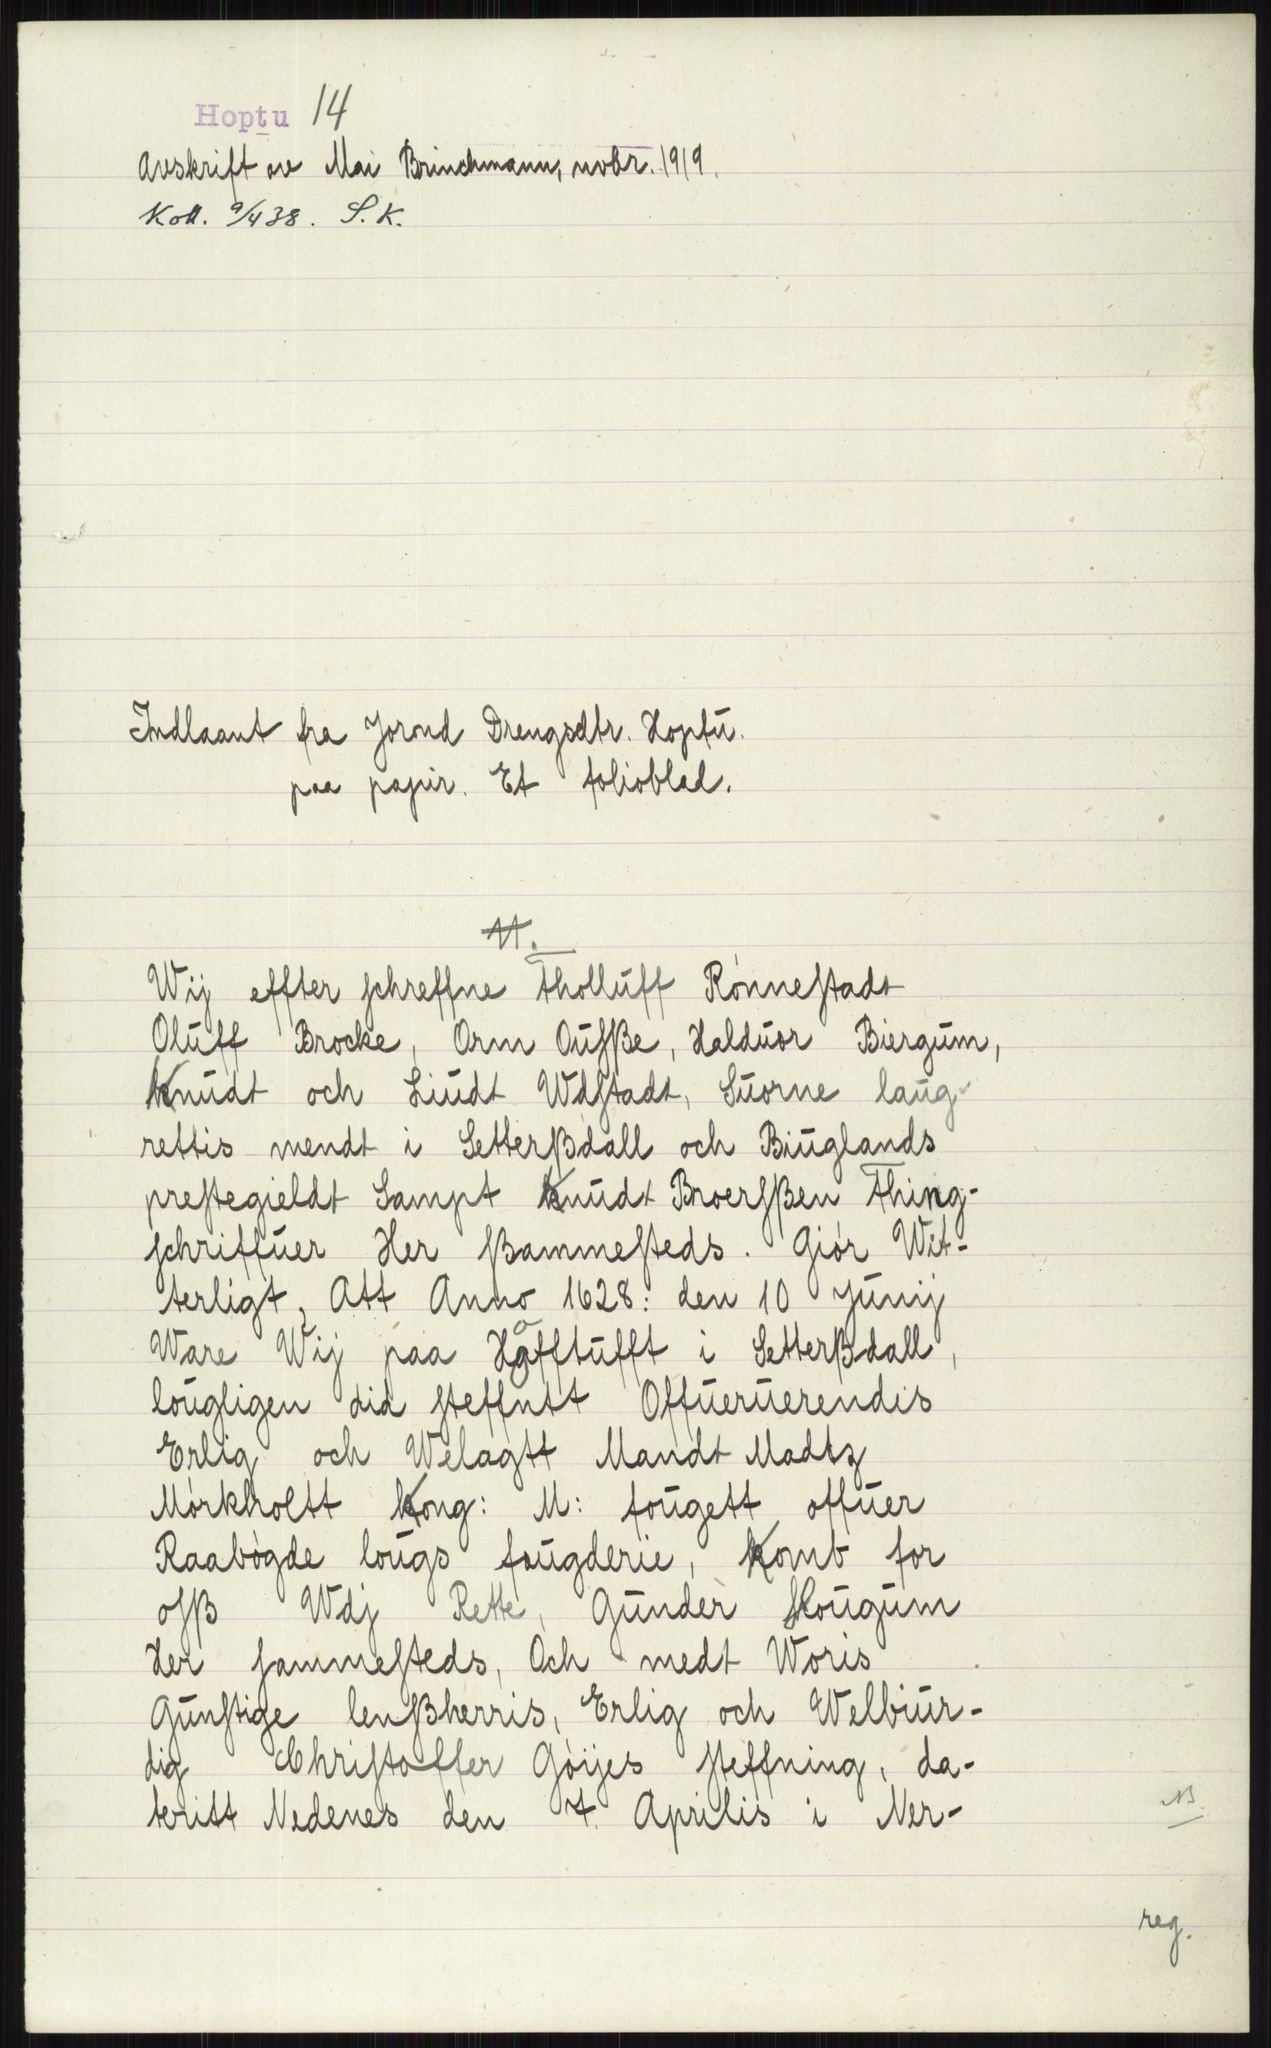 Hoptu 14
Avskrift av Mai Brinchmann, nobr. 1919.
Koll. 9/4 38. S. K.
Indlaant fra Jorond Drengsdtr. Hoptu.
paa papir. Et folioblad.
11.
Wij effter schreffne Tholluff Rönnestadt
Oluff Brocke, Orm Oufsße, Halduor Biergum,
knudt och Liudt Wdstadt, Suorne laug-
rettis mendt i Setterßdall och Biuglands
prestegieldt Sampt knudt Broersßen Thing-
schriffuer Her ßammesteds. Giör Wit-
terligt, Att Anno 1628: den 10 Junij
Ware Wij paa Hafftufft i Setterßdall,
lougligen did steffntt Offueruerendis
Erlig och Welagtt Mandt Madtz
Mörkholtt kong: M: fougett offuer
Raabögde lougs fougderie, komb for
osß Wdj Rette, Gunder Hougum
Her sammesteds, Och medt Woris
Gunstige lenßherris, Erlig och Welbiur-
dig Christoffer Göijes steffning, da-
teritt Nedenes den 7 Aprilis i Ner-
NB.
reg.